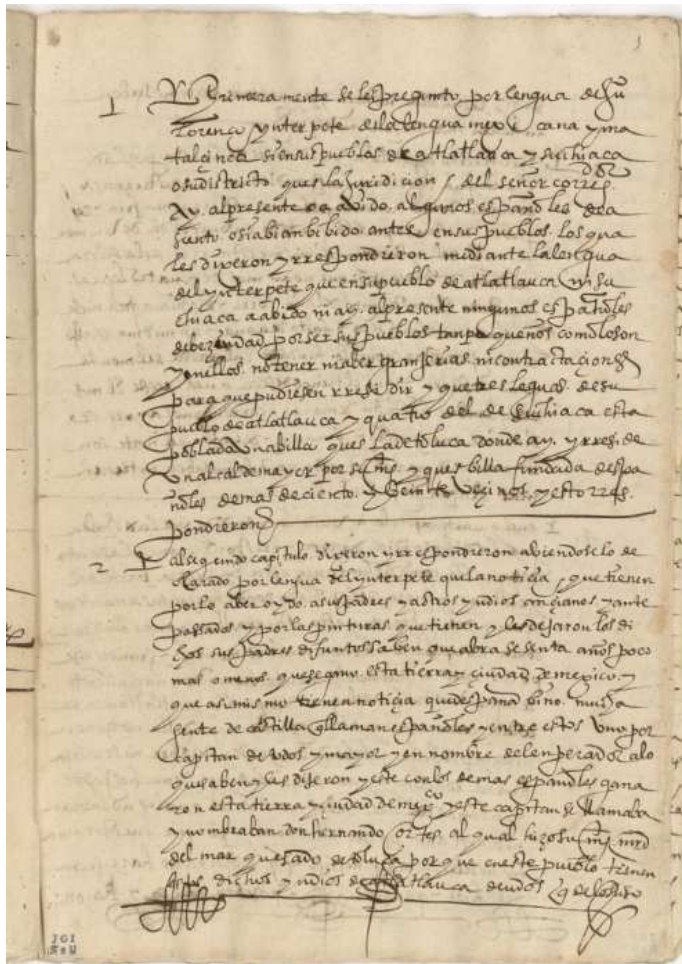 1
1 Primera mente se les pregunto por lengua de Ju
Lorenço ynterpete de la lengua mexi cana y ma
talçinca si en sus pueblos de atlatlauca y suchiaca
o su districto ques la Juridicion del señor corre
dor
Ay al presente o a avido algunos españoles de a
siento o si abian bibido antes en sus pueblos los qua
les dixeron y rrespondieron mediante la lengua
del ynterpete que en su pueblo de atlatlauca ni su
chiaca a abido ni ay al presente ningunos españoles
de bezindad por ser sus pueblos tan pequeños como lo son
y en ellos no tener ni aber granjerias ni contractaçiones
para que pudiesen rresidir y que tres leguas de su
pueblo de atlatlauca y quatro del de suchiaca esta
poblada una billa ques la de toluca donde ay y rresi de
un alcalde mayor por su mag y ques billa fundada despa
ñoles de mas de ciento y beinte vezinos y esto rres
pondieron
2 al segundo capitulo dixeron y rrespondieron abiendoselo de
clarado por lengua del ynterpete que la notiçia que tienen
por lo aber oydo a sus padres y a otros yndios ançianos y ante
passados y por las pinturas que tienen y les dejaron los di
chos sus padres difuntos saben que abra sesenta años poco
mas o menos que se gano esta tierra y çiudad de mexico y
que asi mismo tienen notiçia que despaña bino mucha
gente de castilla q llaman españoles y entre estos uno por
capitan de todos y mayor y en nombre del enperador a lo
que saben y les dijeron y este con los demas españoles gana
ron esta tierra y çiudad de mexco y este capitan se llamaba
y nombraban don fernando cortes al qual hizo su mag mrd
del marquesado de toluca por que en este pueblo tienen
dichos yndios de atlatlauca deudos
JGI